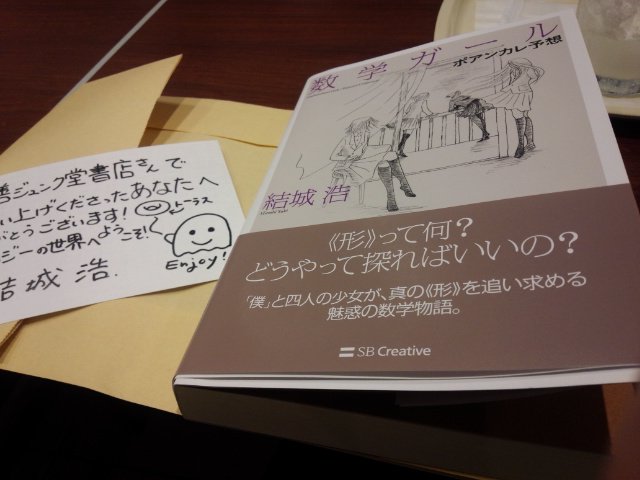 善ジュンク堂書店さんで
い上げくださったあなたへ
がとうございます!
トーラス
ジーの世界へようこそ!
Enjoy!
結城 浩.
数学ガール
ポアンカレ予想
結城 浩
Hiroshi Yuki
《形》って何?
どうやって探ればいいの?
「僕」と四人の少女が、真の《形》を追い求める
魅惑の数学物語。
SB Creative